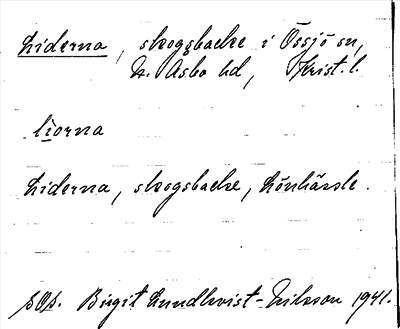 Liderna, skogsbacke i Össjö sn,
N. Åsbo hd, Krist. l.
liorna
Liderna, skogsbacke, Lönhässle.
Birgit Lundkvist-Nilsson 1941.